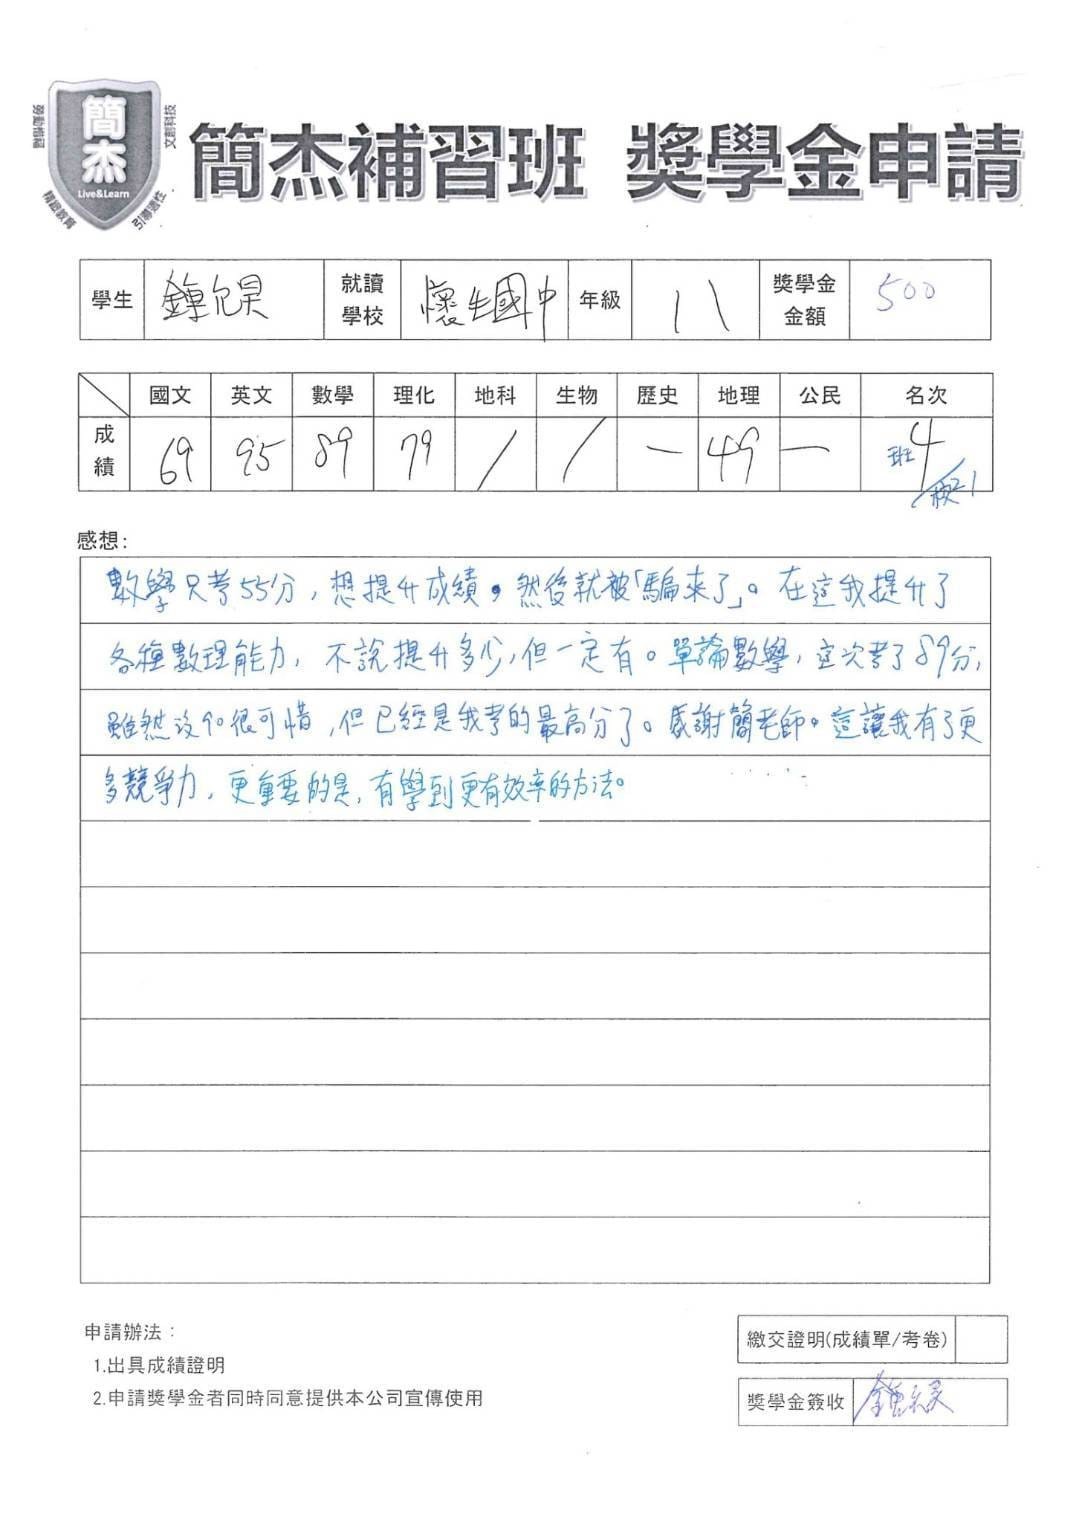 簡杰
Live&Learn
精緻教育
引導適性
文創科技
簡杰補習班 獎學金申請
學生 鍾 昊 就讀學校 懷生國中 年級 八 獎學金金額 500
國文 英文 數學 理化 地科 生物 歷史 地理 公民 名次
成績 69 95 89 79 / / — 49 — 班4
校21
感想:
數學只考55分,想提升成績。然後就被「騙來了」。在這我提升了
各種數理能力,不說提升多少,但一定有。單論數學,這次考了89分,
雖然沒90很可惜,但已經是我考的最高分了。感謝簡老師。這讓我有了更
多競爭力,更重要的是,有學到更有效率的方法。
申請辦法:
1.出具成績證明
2.申請獎學金者同時同意提供本公司宣傳使用
繳交證明(成績單/考卷)
獎學金簽收